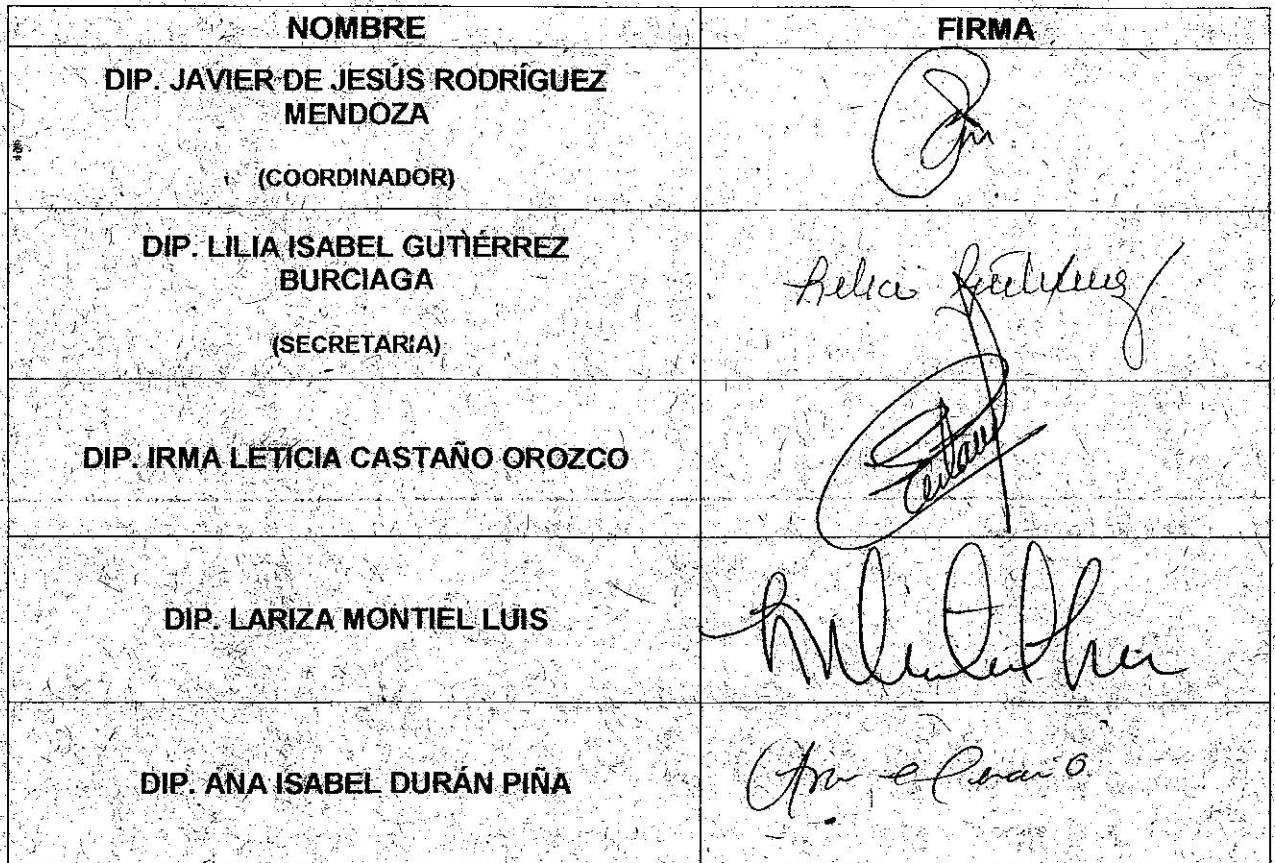 NOMBRE FIRMA
DIP. JAVIER DE JESÚS RODRÍGUEZ
MENDOZA
(COORDINADOR)
DIP. LILIA ISABEL GUTIÉRREZ
BURCIAGA
(SECRETARIA)
DIP. IRMA LETICIA CASTAÑO OROZCO
DIP. LARIZA MONTIEL LUIS
DIP. ANA ISABEL DURÁN PIÑA